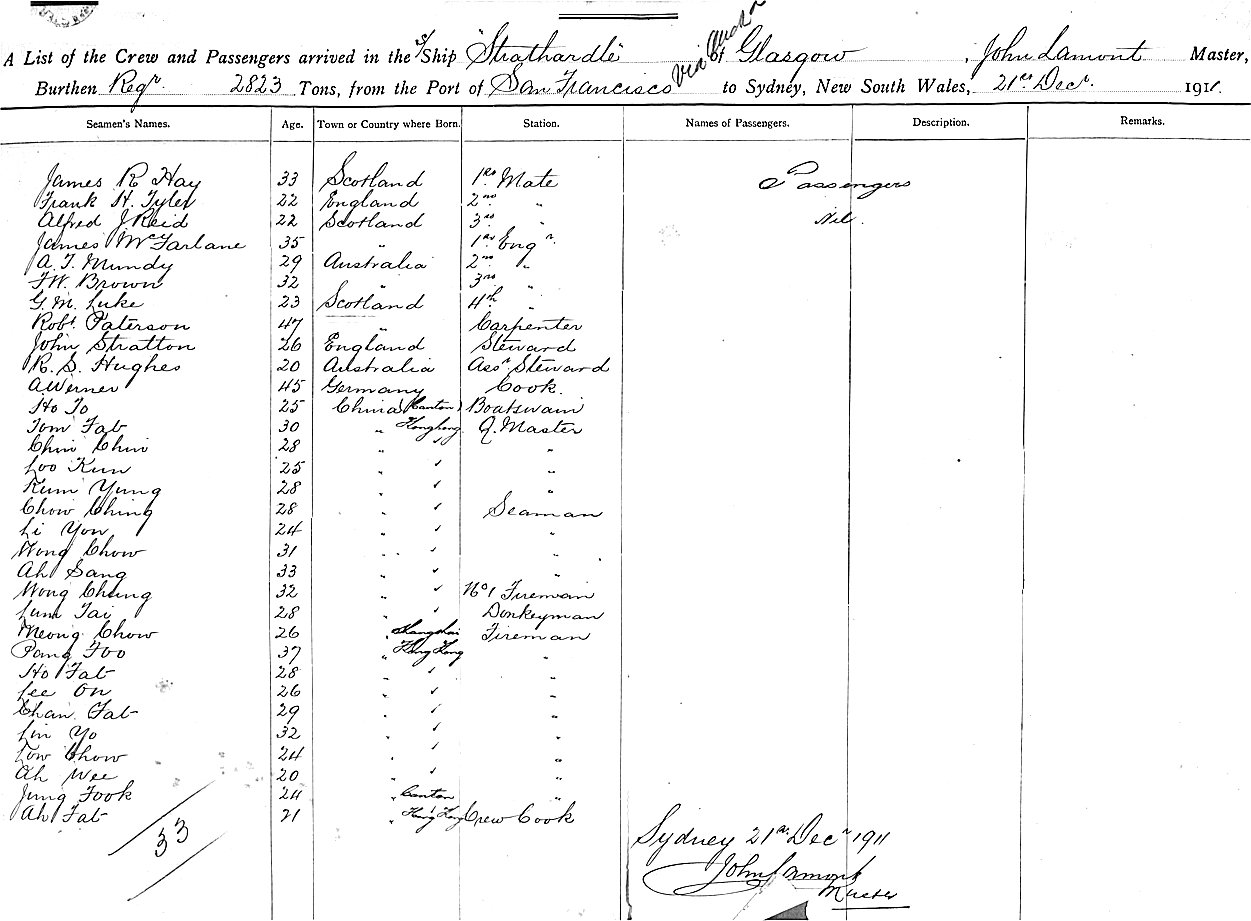 A List of the Crew and Passengers arrived in the S/Ship "Strathardle" via of Glasgow, John Lamont Master,
Burthen Regr. 2823 Tons, from the Port of San Francisco to Sydney, New South Wales, 21st Decr. 1911.
Seamen's Names. Age. Town or Country where Born. Station. Names of Passengers. Description. Remarks.
James R Hay 33 Scotland 1st Mate Passengers
Frank H. Tyler 22 England 2nd "
Alfred J. Reid 22 Scotland 3rd " Nil.
James McFarlane 35 " 1st Engr.
A. T. Mundy 29 Australia 2nd "
F.W. Brown 32 " 3rd "
G. M. Luke 23 Scotland 4th "
Robt. Paterson 47 " Carpenter
John Stratton 26 England Steward
R. S. Hughes 20 Australia Asst Steward
A Werner 45 Germany Cook.
Ho To 25 China (Canton) Boatswain
Tom Fat 30 " Hongkong Q. Master
Chin Chin 28 " ✓ "
Loo Kun 25 " ✓ "
Kum Yung 28 " ✓ "
Chow Ching 28 " ✓ Seaman
Li Yon 24 " ✓ "
Wong Chow 31 " ✓ "
Ah Sang 33 " ✓ "
Wong Chung 32 " ✓ No 1 Fireman
Lum Tai 28 " ✓ Donkeyman
Meong Chow 26 " Shanghai Fireman
Pang Foo 37 " Hong Kong "
Ho Fat 28 " ✓ "
Lee On 26 " ✓ "
Chan Fat 29 " ✓ "
Lin Yo 32 " ✓ "
Low Chow 24 " ✓ "
Ah Wee 20 " ✓ "
Jung Fook 24 " Canton "
Ah Fat 21 " Hong Kong Crew Cook
33
Sydney 21st Decr 1911
John Lamont
Master